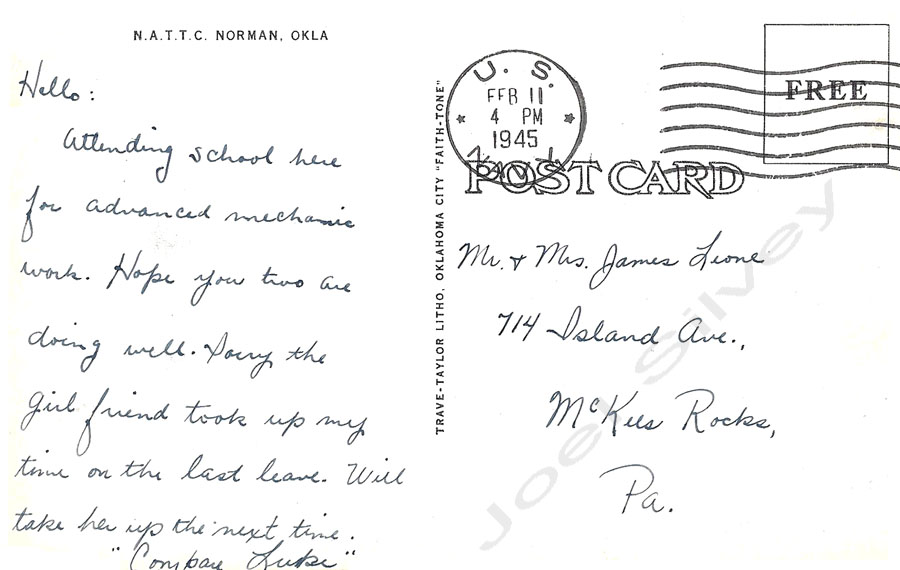 N.A.T.T.C. NORMAN, OKLA
Hello:
Attending school here
for advanced mechanic
work. Hope you two are
doing well. Sorry the
girl friend took up my
time on the last leave. Will
take her up the next time.
"Compare Luke"
TRAVE-TAYLOR LITHO, OKLAHOMA CITY "FAITH-TONE"
U. S.
FEB 11
4 PM
1945
NAVY
FREE
POST CARD
Mr. & Mrs. James Leone
714 Island Ave.,
McKees Rocks,
Pa.
Joey Silvey